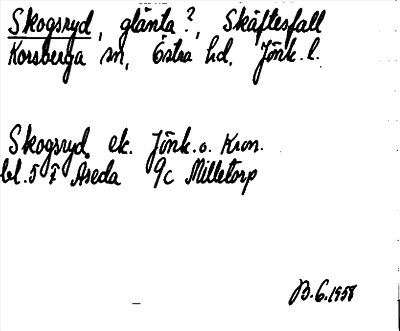 Skogsryd, glänta?, Skäftesfall
Korsberga sn, Östra hd, Jönk. l.
Skogsryd ek. Jönk. o. Kron.
bl. 5 F Åseda 9c Milletorp
B. G. 1958